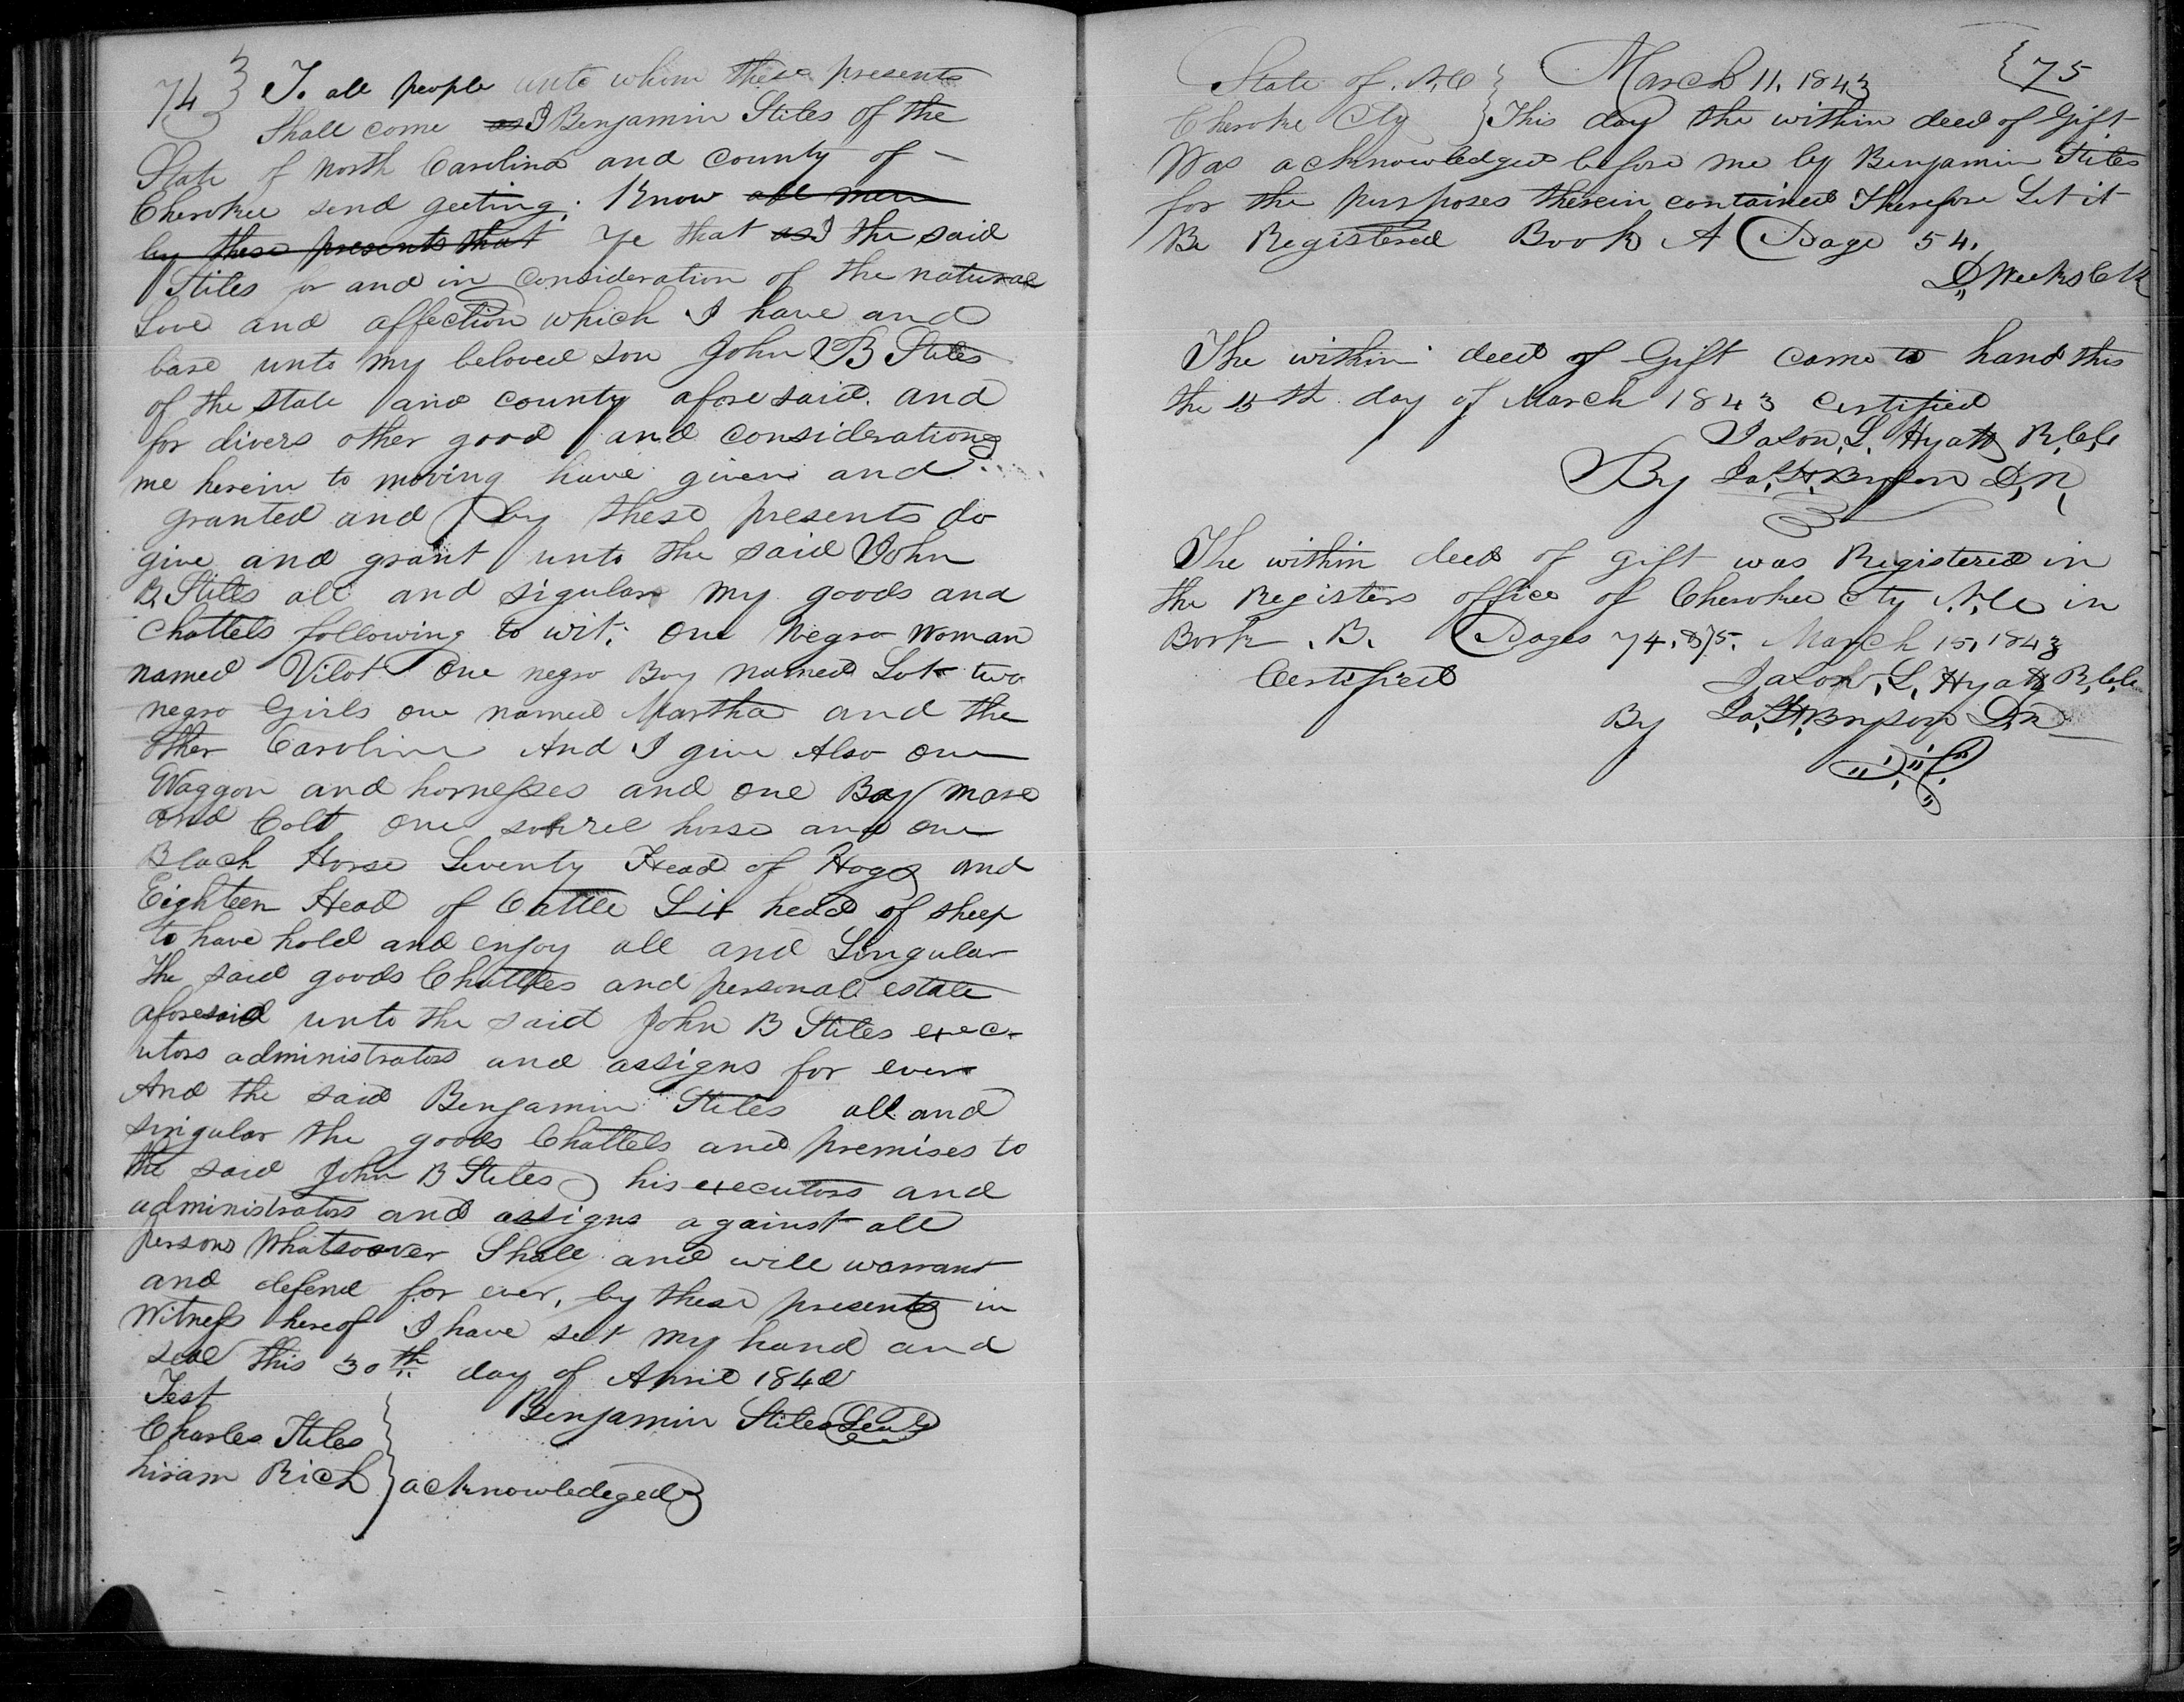 74} To all people unto whom these presents
Shall come as I Benjamin Stiles of the
State of North Carolina and county of -
Cherokee send geeting; Know all men
by these presents that Ye that as I the said
Stiles for and in Consideration of the natural
Love and affection which I have and
bare unto my beloved son John B Stiles
of the state and county aforesaid. and
for divers other good and considerations
me herein to moving have given and
granted and by these presents do
give and grant unto the said John
B. Stiles all and sigular my goods and
Chattels following to wit; one Negro Woman
named Vilot One negro Boy named Lot two
negro Girls one named Martha and the
other Caroline And I give Also one
Waggon and hornesses and one Bay mare
and Colt one sorrel horse and one
Black Horse Seventy Head of Hogs and
Eighteen Head of Cattle Six head of sheep
to have hold and enjoy all and Singular
the said goods Chattles and personal estate
aforesaid unto the said John B Stiles exec-
utors administrators and assigns for ever
And the said Benjamin Stiles all and
singular the goods Chattels and premises to
the said John B Stiles his executors and
administrators and assigns against all
persons Whatsoever Shall and will warrant
and defend for ever, by these presents in
Witness hereof I have set my hand and
seal this 30th day of April 1842
Test
Benjamin Stiles Seal
Charles Stiles
hiram Rich } acknowledeged
State of. N.C } March 11. 1843 {75
Cherokee Cty } This day the within deed of Gift
Was acknowledged before me by Benjamin Stiles
for the purposes therein contained Therefore Let it
Be Registered Book A Page 54.
D, Weeks Clk
The within deed of Gift came to hand this
the 15th day of March 1843 Certified
Jason, L. Hyatt R,C,C
By Ja,H,Bryson D,R,
The within deed of gift was Registered in
the Registers office of Cherokee Cty N.C. in
Book. B. Pages 74. &75. March 15, 1843
Certified Jason, L, Hyatt R,C,C,
By Ja,H,Bryson D,R